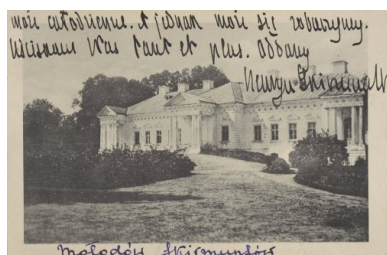 moie całodzienne. A jednak może się zobaczymy.
Uściskam Was tant et plus. Oddany
Henryk Skirmunt
Mołodów Skirmuntów